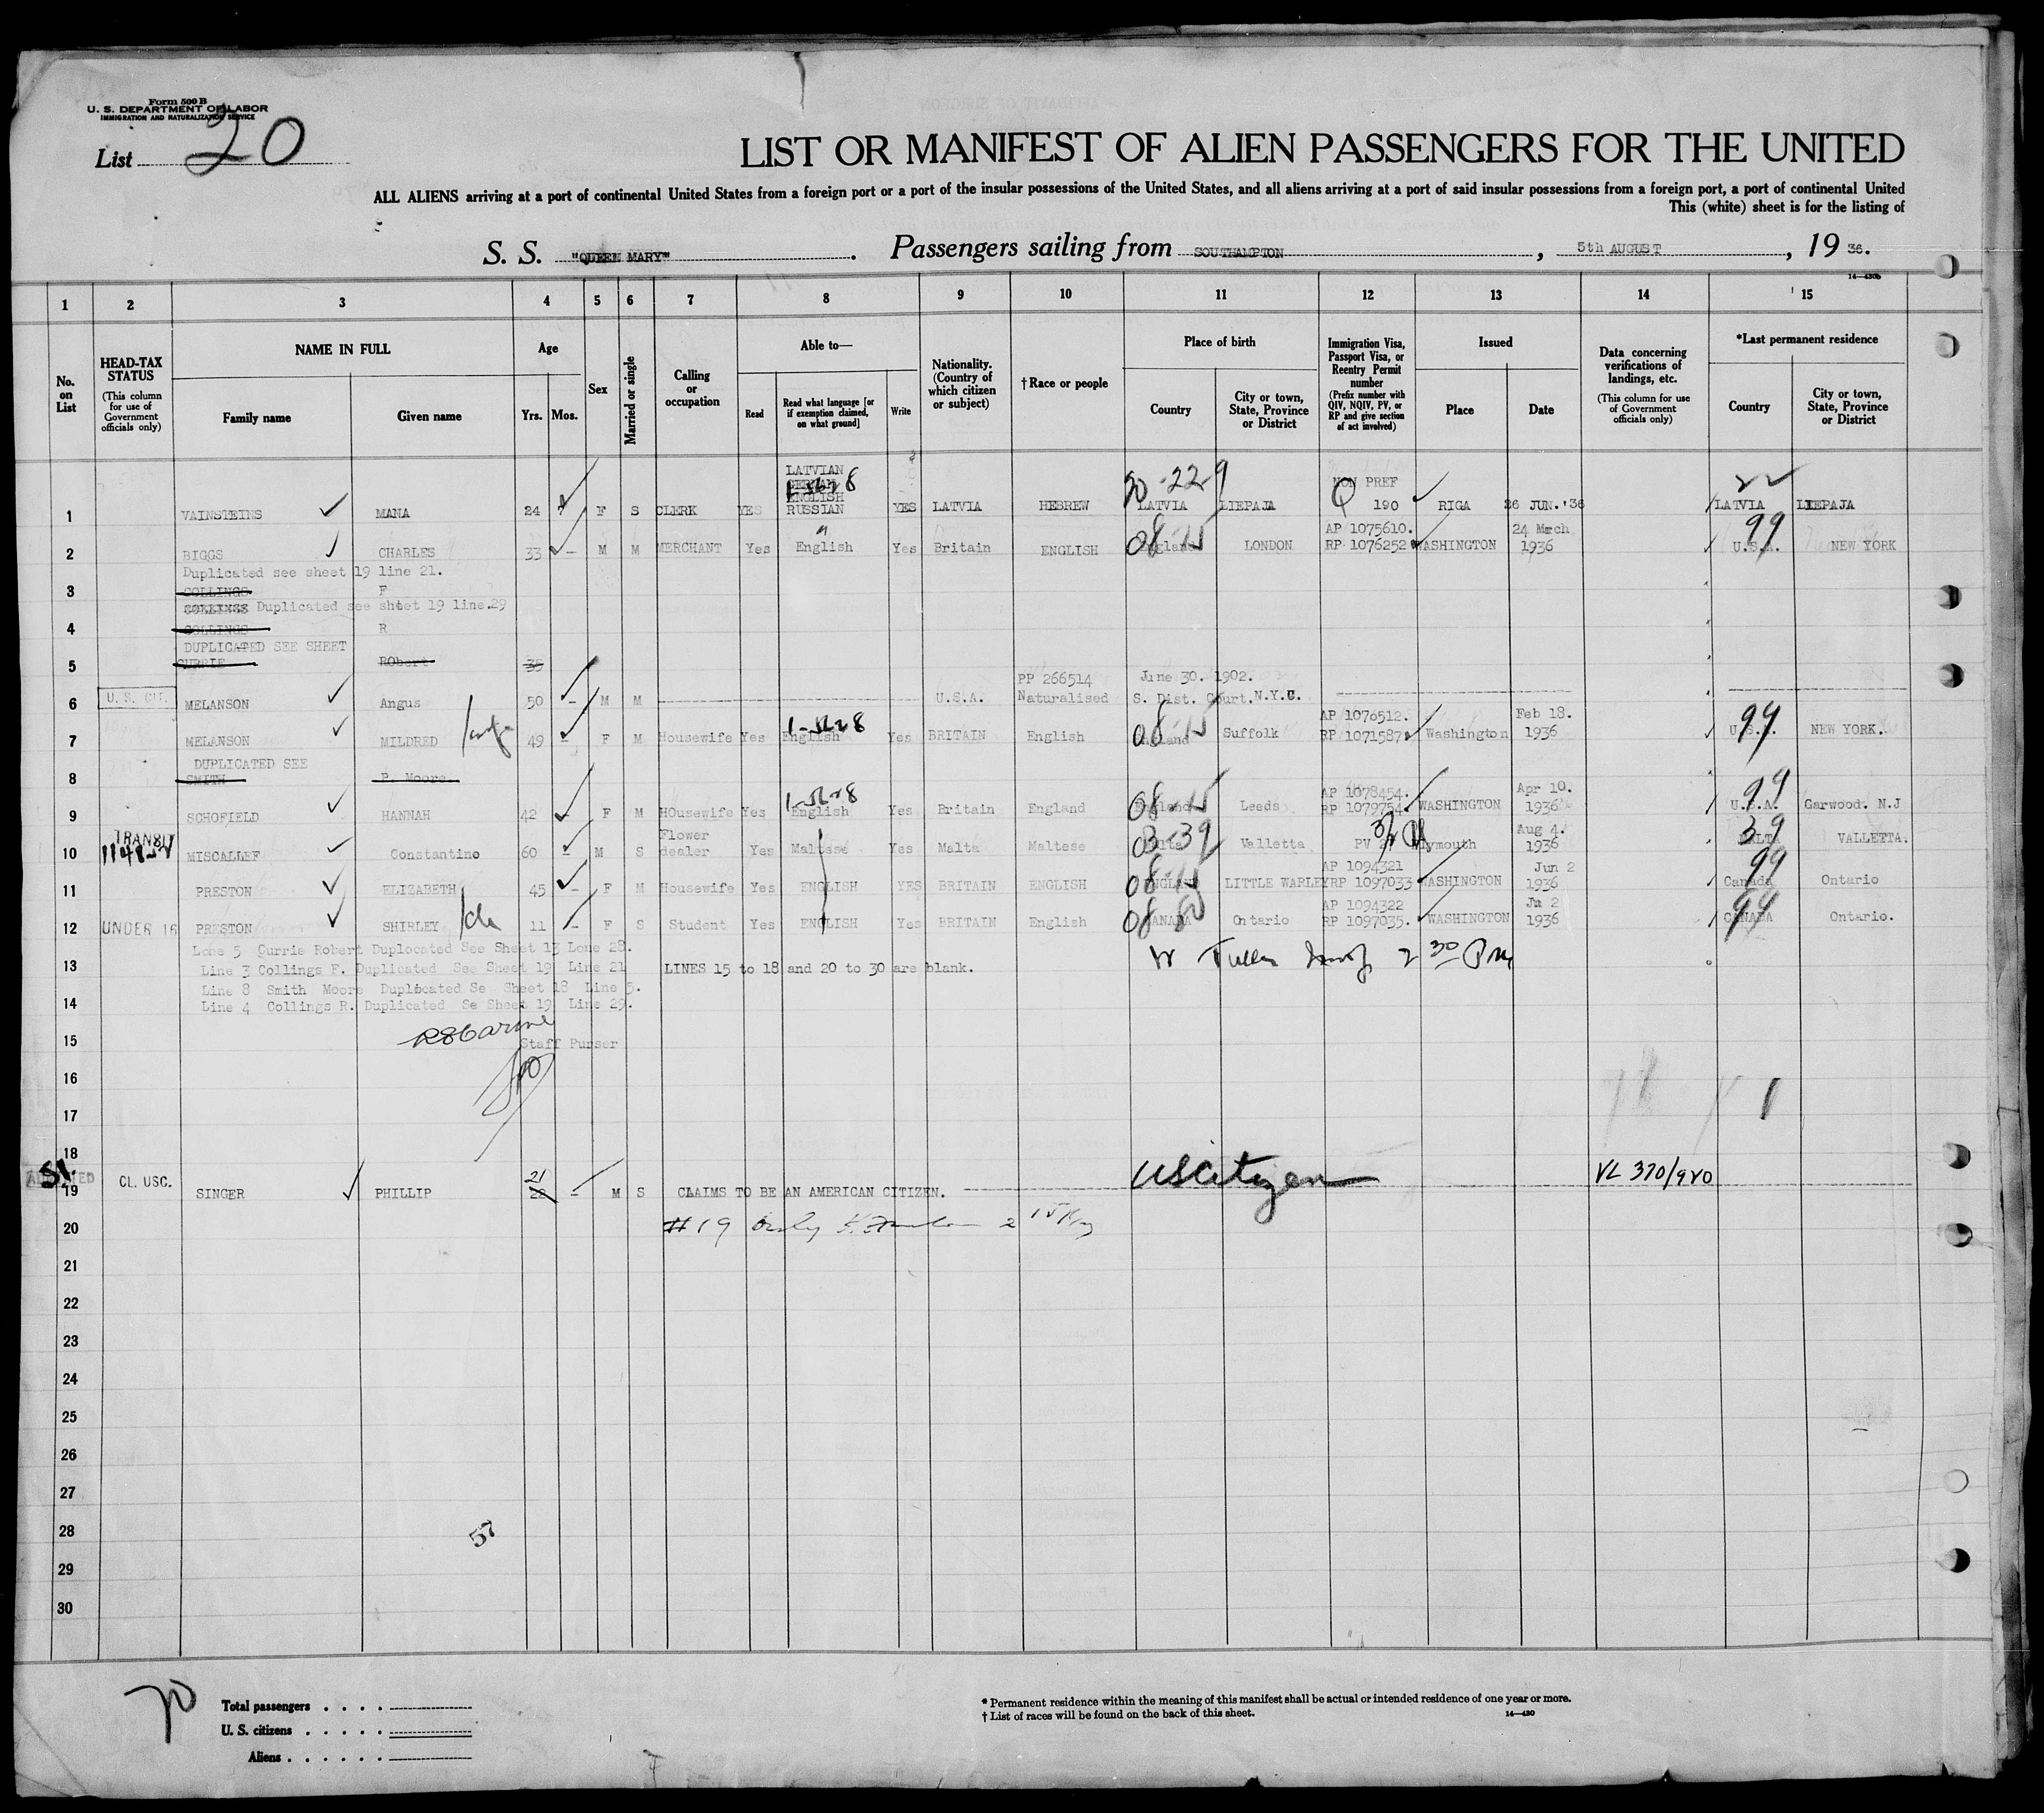 Form 500 B
U. S. DEPARTMENT OF LABOR
IMMIGRATION AND NATURALIZATION SERVICE
List 20
LIST OR MANIFEST OF ALIEN PASSENGERS FOR THE UNITED
ALL ALIENS arriving at a port of continental United States from a foreign port or a port of the insular possessions of the United States, and all aliens arriving at a port of said insular possessions from a foreign port, a port of continental United
This (white) sheet is for the listing of
S. S. "QUEEN MARY". Passengers sailing from SOUTHAMPTON, 5th AUGUST, 19 36.
14—430b
1 2 3 4 5 6 7 8 9 10 11 12 13 14 15
No. on List
HEAD-TAX STATUS (This column for use of Government officials only)
NAME IN FULL Family name Given name
Age Yrs. Mos.
Sex
Married or single
Calling or occupation
Able to— Read Read what language [or if exemption claimed, on what ground] Write
Nationality. (Country of which citizen or subject)
† Race or people
Place of birth Country City or town, State, Province or District
Immigration Visa, Passport Visa, or Reentry Permit number (Prefix number with QIV, NQIV, PV, or RP and give section of act involved)
Issued Place Date
Data concerning verifications of landings, etc. (This column for use of Government officials only)
*Last permanent residence Country City or town, State, Province or District
LATVIAN GERMAN ENGLISH 20-22-9 NON PREF 22
1 VAINSTEINS MANA 24 F S CLERK YES RUSSIAN YES LATVIA HEBREW LATVIA LIEPAJA Q 190 RIGA 26 JUN.'36 LATVIA LIEPAJA
AP 1075610. 24 March 99
2 BIGGS CHARLES 33 - M M MERCHANT Yes English Yes Britain ENGLISH England LONDON RP 1076252 WASHINGTON 1936 U.S.A. NEW YORK
Duplicated see sheet 19 line 21.
3 COLLINGS F
COLLINGS Duplicated see sheet 19 line.29
4 COLLINGS R
DUPLICATED SEE SHEET
5 CURRIE RObert 35
PP 266514 June 30. 1902.
6 U. S. CIT. MELANSON Angus 50 - M M U.S.A. Naturalised S. Dist. Court. N.Y.C.
AP 1076512. Feb 18. 99
7 MELANSON MILDRED 49 - F M Housewife Yes English Yes BRITAIN English England Suffolk RP 1071587 Washington 1936 U.S.A. NEW YORK.
DUPLICATED SEE
8 SMITH P. Moore.
AP 1078454. Apr 10. 99
9 SCHOFIELD HANNAH 42 - F M HOusewife Yes English Yes Britain England England Leeds RP 1079754. WASHINGTON 1936 U.S.A. Garwood. N.J
TRANSIT Flower 03-39 Aug 4. 39
10 MISCALLEF Constantino 60 - M S dealer Yes Maltese Yes Malta Maltese Malta Valletta PV Plymouth 1936 MALTA VALLETTA.
AP 1094321 Jun 2 99
11 PRESTON ELIZABETH 45 - F M Housewife Yes ENGLISH YES BRITAIN ENGLISH ENGLAND LITTLE WARLEY RP 1097033 WASHINGTON 1936 Canada Ontario
AP 1094322 Ju 2 99
12 UNDER 16 PRESTON SHIRLEY 11 - F S Student Yes ENGLISH Yes BRITAIN English CANADA Ontario RP 1097035. WASHINGTON 1936 CANADA Ontario.
Lone 5 Qurrie Robert Duplocated See Sheet 13 Lone 28.
13 Line 3 Collings F. Duplicated See Sheet 19 Line 21 LINES 15 to 18 and 20 to 30 are blank. 2 30 PM
Line 8 Smith Moore Duplicated Se Sheet 18 Line 5.
14 Line 4 Collings R. Duplicated Se Sheet 19 Line 29.
15 Staff Purser
16
17
18
19 CL. USC. SINGER PHILLIP 28 21 - M S CLAIMS TO BE AN AMERICAN CITIZEN. US Citizen VL 370/920
20 #19 only
21
22
23
24
25
26
27
28 57
29
30
Total passengers
U. S. citizens
Aliens
* Permanent residence within the meaning of this manifest shall be actual or intended residence of one year or more.
† List of races will be found on the back of this sheet.
14—430